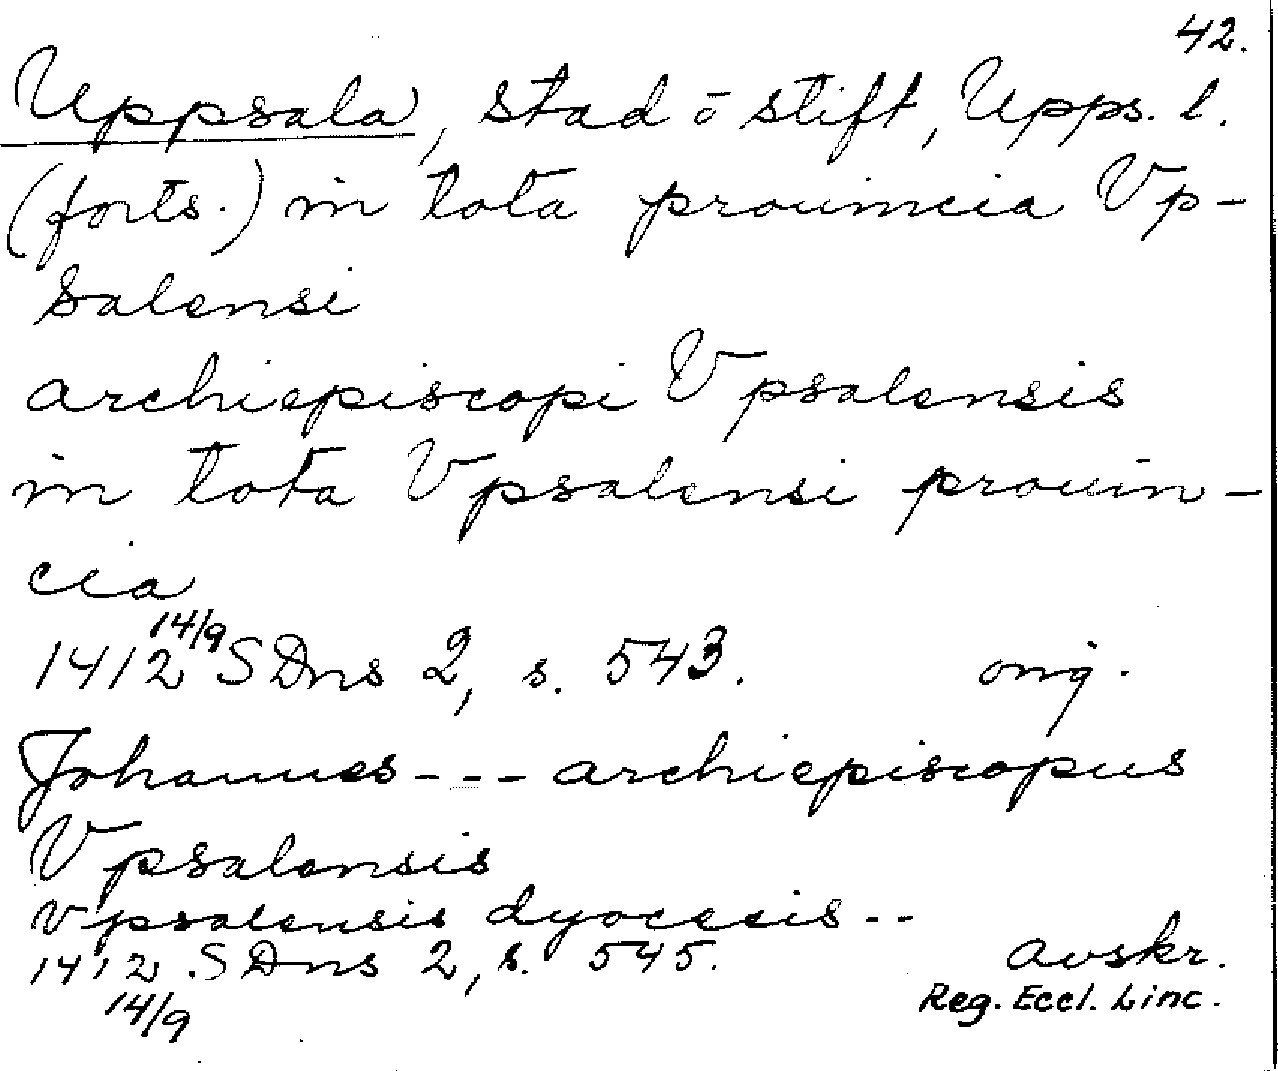 42.
Uppsala, stad o stift, Upps. l.
(forts.) in tota prouincia Vp-
salensi
archiepiscopi Vpsalensis
in tota Vpsalensi prouin-
cia
14/9
1412 SDns 2, s. 543. orig.
Johannes --- archiepiscopus
Vpsalensis
vpsalensis dyocesis --
1412 SDns 2, s. 545. avskr.
14/9 Reg. Eccl. Linc.